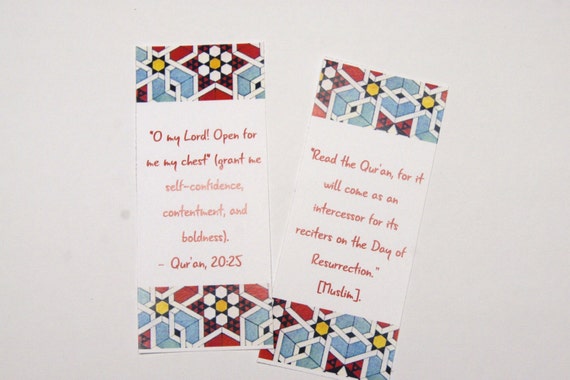 "O my Lord! Open for
me my chest" (grant me
self-confidence,
contentment, and
boldness).
- Qur'an, 20:25
"Read the Qur'an, for it
will come as an
intercessor for its
reciters on the Day of
Resurrection."
[Muslim].